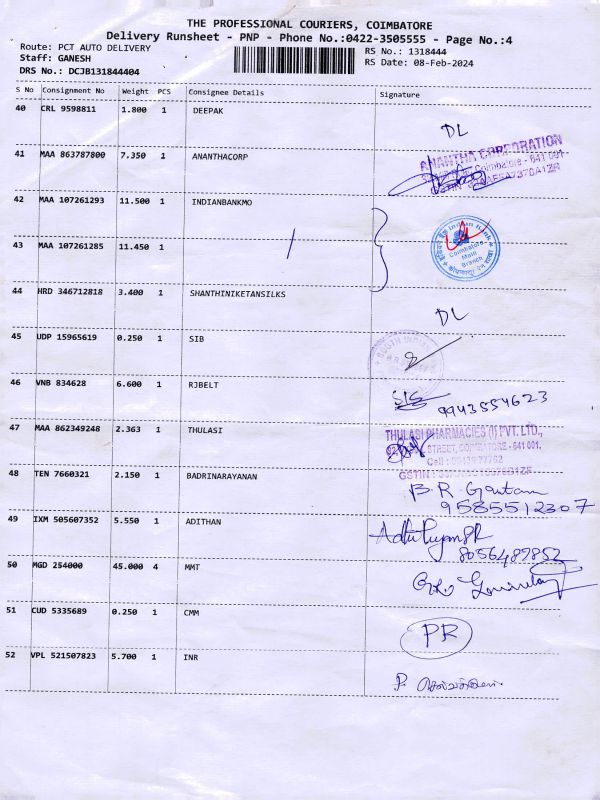 THE PROFESSIONAL COURIERS, COIMBATORE
Delivery Runsheet - PNP - Phone No.:0422-3505555 - Page No.:4
Route: PCT AUTO DELIVERY RS No.: 1318444
Staff: GANESH RS Date: 08-Feb-2024
DRS No.: DCJB131844404
S No Consignment No Weight PCS Consignee Details Signature
40 CRL 9598811 1.800 1 DEEPAK
DL
41 MAA 863787800 7.350 1 ANANTHACORP
ANANTHA CORPORATION
Coimbatore - 641 001.
42 MAA 107261293 11.500 1 INDIANBANKMO
43 MAA 107261285 11.450 1
Indian Bank
Coimbatore
Main
Branch
44 HRD 346712818 3.400 1 SHANTHINIKETANSILKS
DL
45 UDP 15965619 0.250 1 SIB
SOUTH INDIAN
46 VNB 834628 6.600 1 RJBELT
9943554623
47 MAA 862349248 2.363 1 THULASI
THULASI PHARMACIES (I) PVT. LTD.,
STREET, COIMBATORE - 641 001.
Cell :
GSTIN :
48 TEN 7660321 2.150 1 BADRINARAYANAN
B.R Gautam
9585512307
49 IXM 505607352 5.550 1 ADITHAN
8056489852
50 MGD 254000 45.000 4 MMT
51 CUD 5335689 0.250 1 CMM
PR
52 VPL 521507823 5.700 1 INR